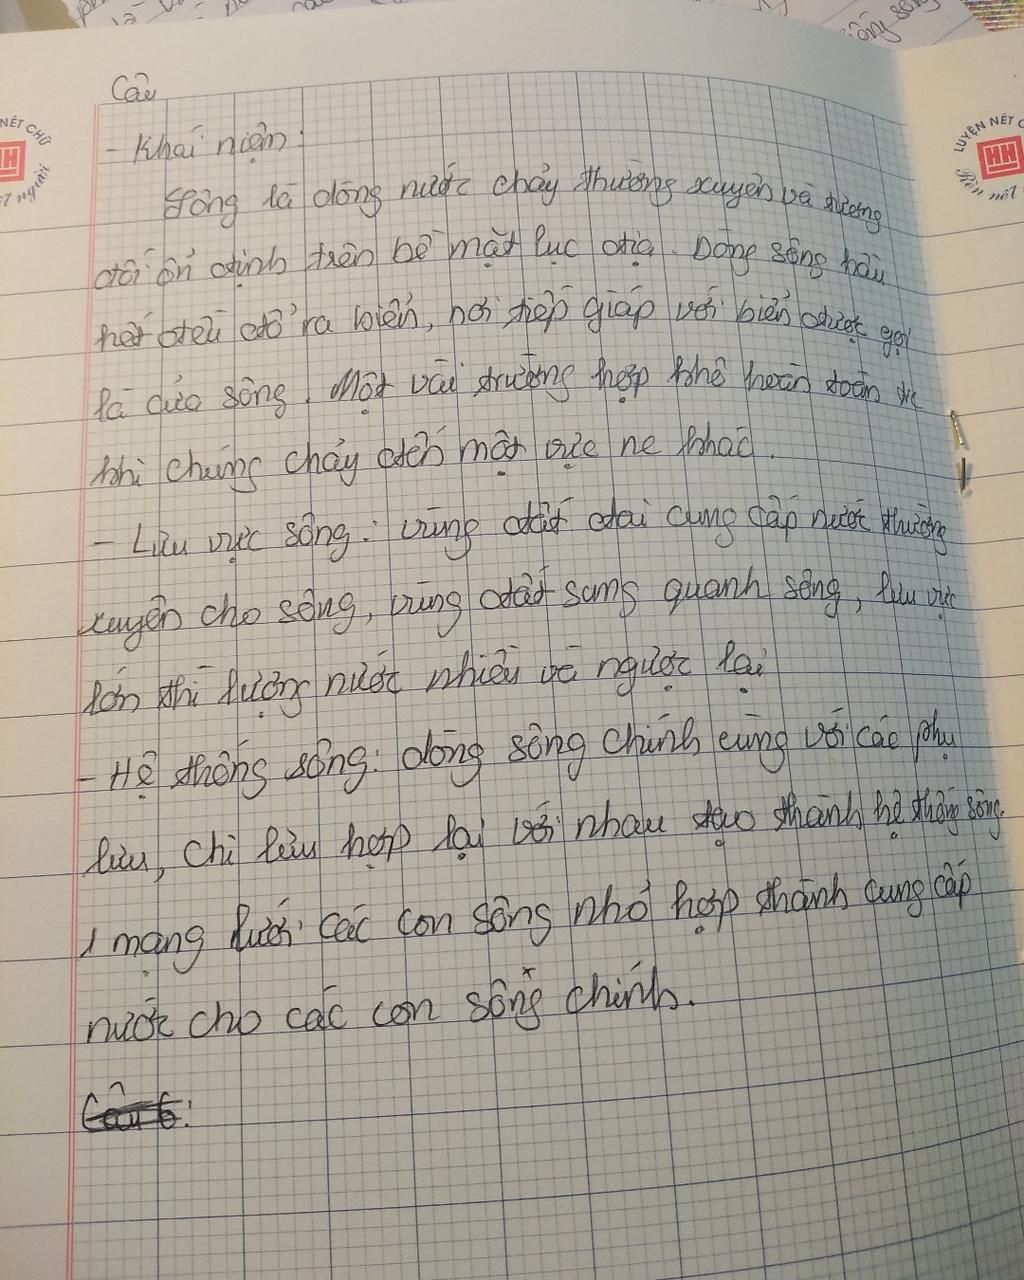 Câu
- Khái niện:
Sông là dòng nước chảy thường xuyên và tương
đối ổn định trên bề mặt lục địa. Dòng sông hầu
hết đều đổ ra biển, nơi tiếp giáp với biển được gọi
là cửa sông. Một vài trường hợp khô hoàn toàn trc
khi chúng chảy đến một vực nc khác.
- Lưu vực sông: vùng đất đai cung cấp nước thường
xuyên cho sông, vùng đất sung quanh sông, lưu vực
lớn thì lượng nước nhiều và ngược lại
- Hệ thống sông: dòng sông chính cùng với các phụ
lưu, chi lưu hợp lại với nhau tạo thành hệ thống sông.
1 mạng lưới các con sông nhỏ hợp thành cung cấp
nước cho các con sông chính.
LUYỆN NÉT C
Rèn nết
NÉT CHỮ
HH
HH